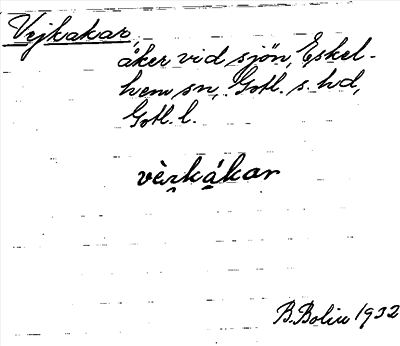 Vejkakar,
åker vid sjön, Eskel-
hem sn, Gotl. s. hd,
Gotl. l.
vèrkákar
B. Bolin 1932